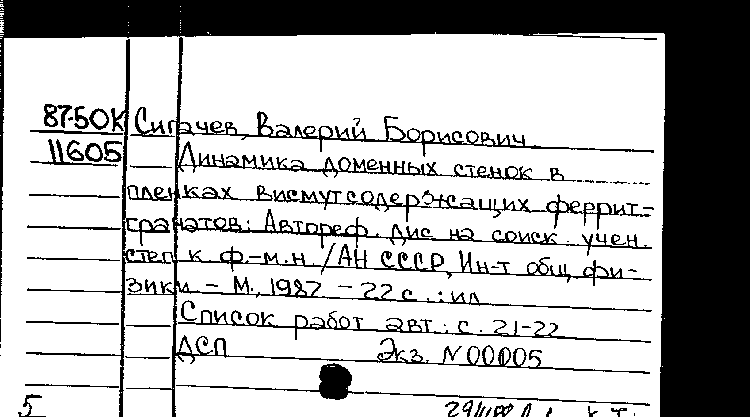 87-50К Сигачев, Валерий Борисович
11605 Динамика доменных стенок в
пленках висмутсодержащих феррит-
гранатов: Автореф. дис на соиск. учен.
степ к. ф.-м.н. / АН СССР, Ин-т общ. фи-
зики. - М., 1987 - 22 с. : ил
Список работ авт.: с. 21-22
ДСП Экз. N 00005
5